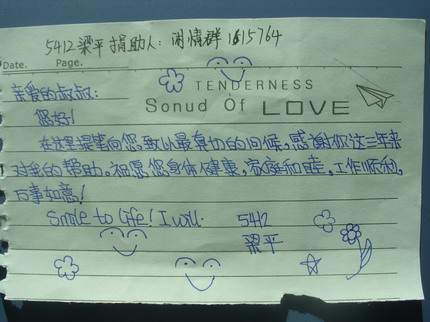 5412 梁平 捐助人: 闲情群 1615764
Date. Page.
TENDERNESS
Sonud Of LOVE
亲爱的叔叔:
您好!
在这里提笔向您致以最真切的问候,感谢你这三年来
对我的帮助。祝愿您身体健康,家庭和睦,工作顺利,
万事如意!
Smile to life! I will.
5412
梁平